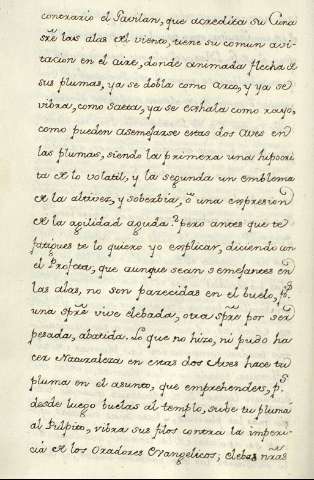 contrario el Gavilan, que acredita su Cuna
sre las alas del viento, tiene su comun avi-
tacion en el aire, donde animada flecha de
sus plumas, ya se dobla como Arco, y ya se
vibra, como Saeta, ya se exhala como rayo,
como pueden asemejarse estas dos Aves en
las plumas, siendo la primera una hipocri-
ta de lo volatil, y la segunda un emblema
de la altivez, y soberbia, ò una expresion
de la agilidad aguda? pero antes que te
fatigues te lo quiero yo explicar, diciendo con
el Profeta, que aunque sean semejantes en
las alas, no son parecidas en el buelo, ps.
una spre vive elebada, otra spre por ser
pesada, abatida. Lo que no hizo, ni pudo ha
cer Naturaleza en estas dos Aves hace tu
pluma en el asunto, que emprehendes, ps.
desde luego buelas al templo, sube tu pluma
al Pulpito, vibra sus filos contra la imperi-
cia de los Oradores Evangelicos; elebas nras